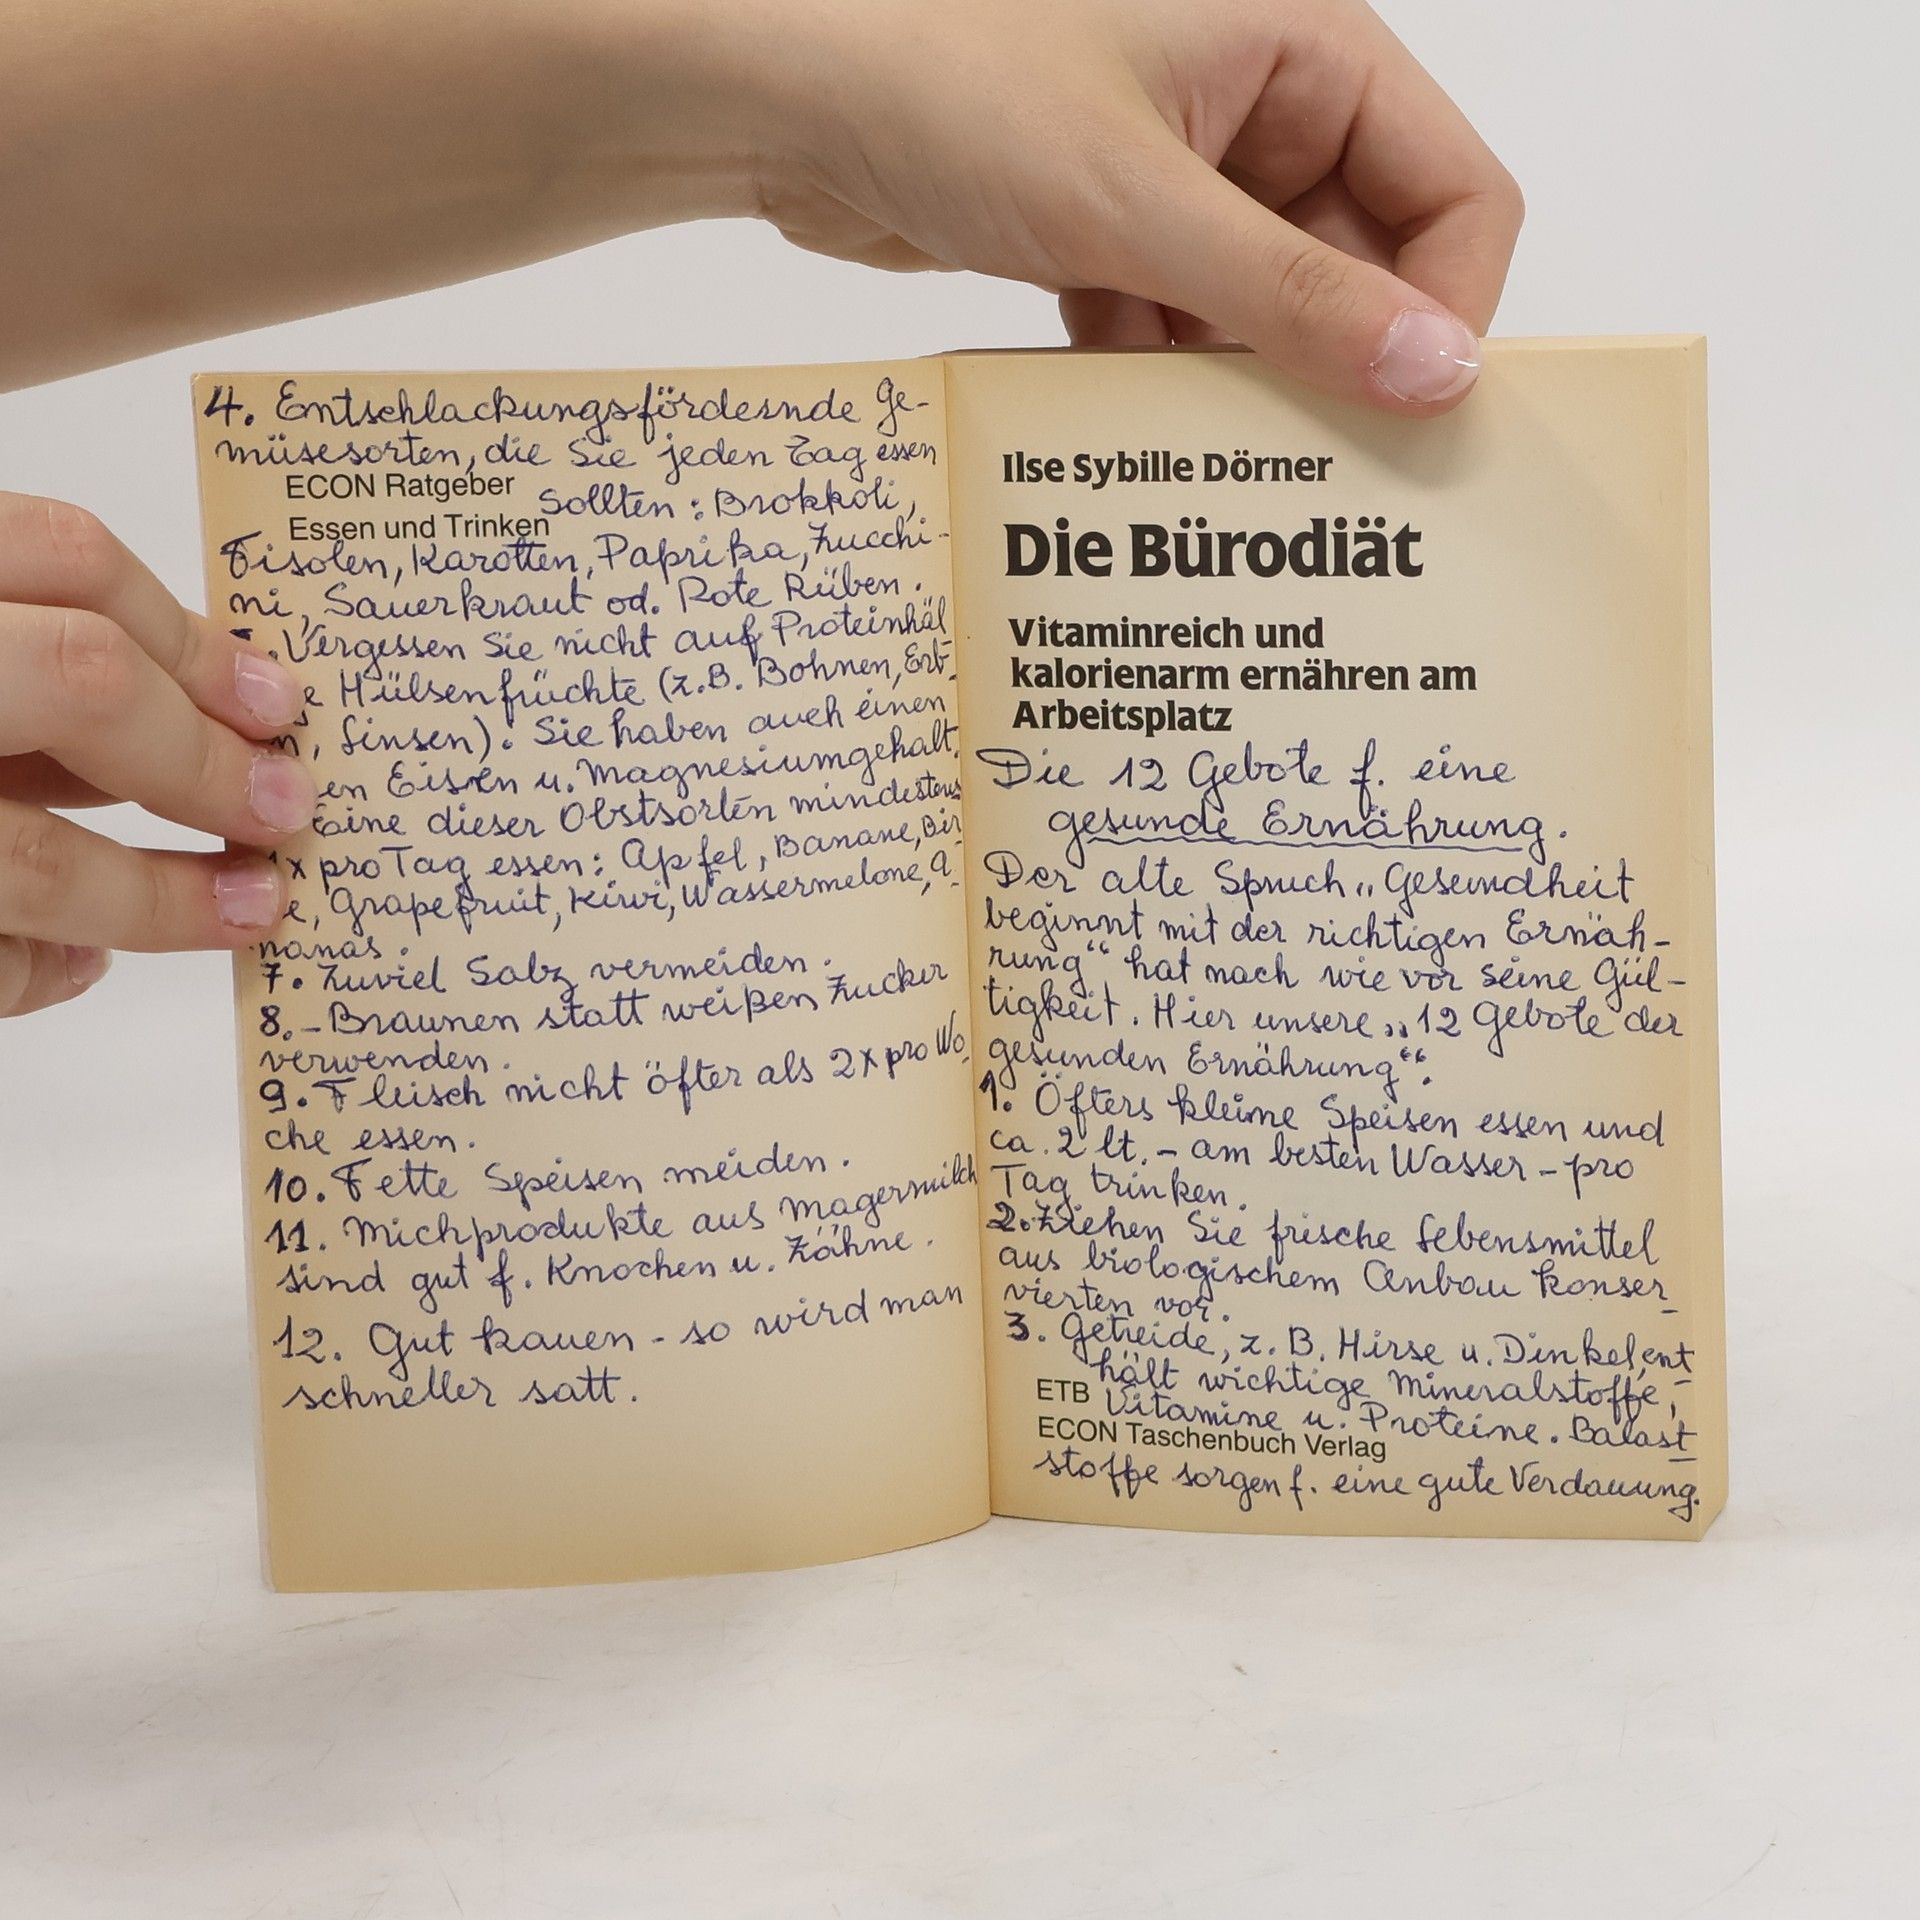 4. Entschlackungsfördernde Ge-
müsesorten, die Sie jeden Tag essen
ECON Ratgeber
sollten: Brokkoli,
Essen und Trinken
Fisolen, Karotten, Paprika, Zucchi-
ni, Sauerkraut od. Rote Rüben.
. Vergessen Sie nicht auf Proteinhäl
e Hülsenfrüchte (z.B. Bohnen, Erb-
n, Linsen). Sie haben auch einen
en Eisen u. Magnesiumgehalt.
Eine dieser Obstsorten mindestens
1x pro Tag essen: Apfel, Banane, Bir-
e, Grapefruit, Kiwi, Wassermelone, A-
nanas.
7. Zuviel Salz vermeiden.
8. - Braunen statt weißen Zucker
verwenden.
9. Fleisch nicht öfter als 2x pro Wo-
che essen.
10. Fette Speisen meiden.
11. Michprodukte aus Magermilch
sind gut f. Knochen u. Zähne.
12. Gut kauen - so wird man
schneller satt.
Ilse Sybille Dörner
Die Bürodiät
Vitaminreich und
kalorienarm ernähren am
Arbeitsplatz
Die 12 Gebote f. eine
gesunde Ernährung.
Der alte Spruch „Gesundheit
beginnt mit der richtigen Ernäh-
rung“ hat nach wie vor seine Gül-
tigkeit. Hier unsere „12 Gebote der
gesunden Ernährung“.
1. Öfters kleine Speisen essen und
ca. 2 lt. - am besten Wasser - pro
Tag trinken.
2. Ziehen Sie frische Lebensmittel
aus biologischem Anbau konser-
vierten vor.
3. Getreide, z. B. Hirse u. Dinkel, ent-
hält wichtige Mineralstoffe,
ETB Vitamine u. Proteine. Balast-
ECON Taschenbuch Verlag
stoffe sorgen f. eine gute Verdauung.